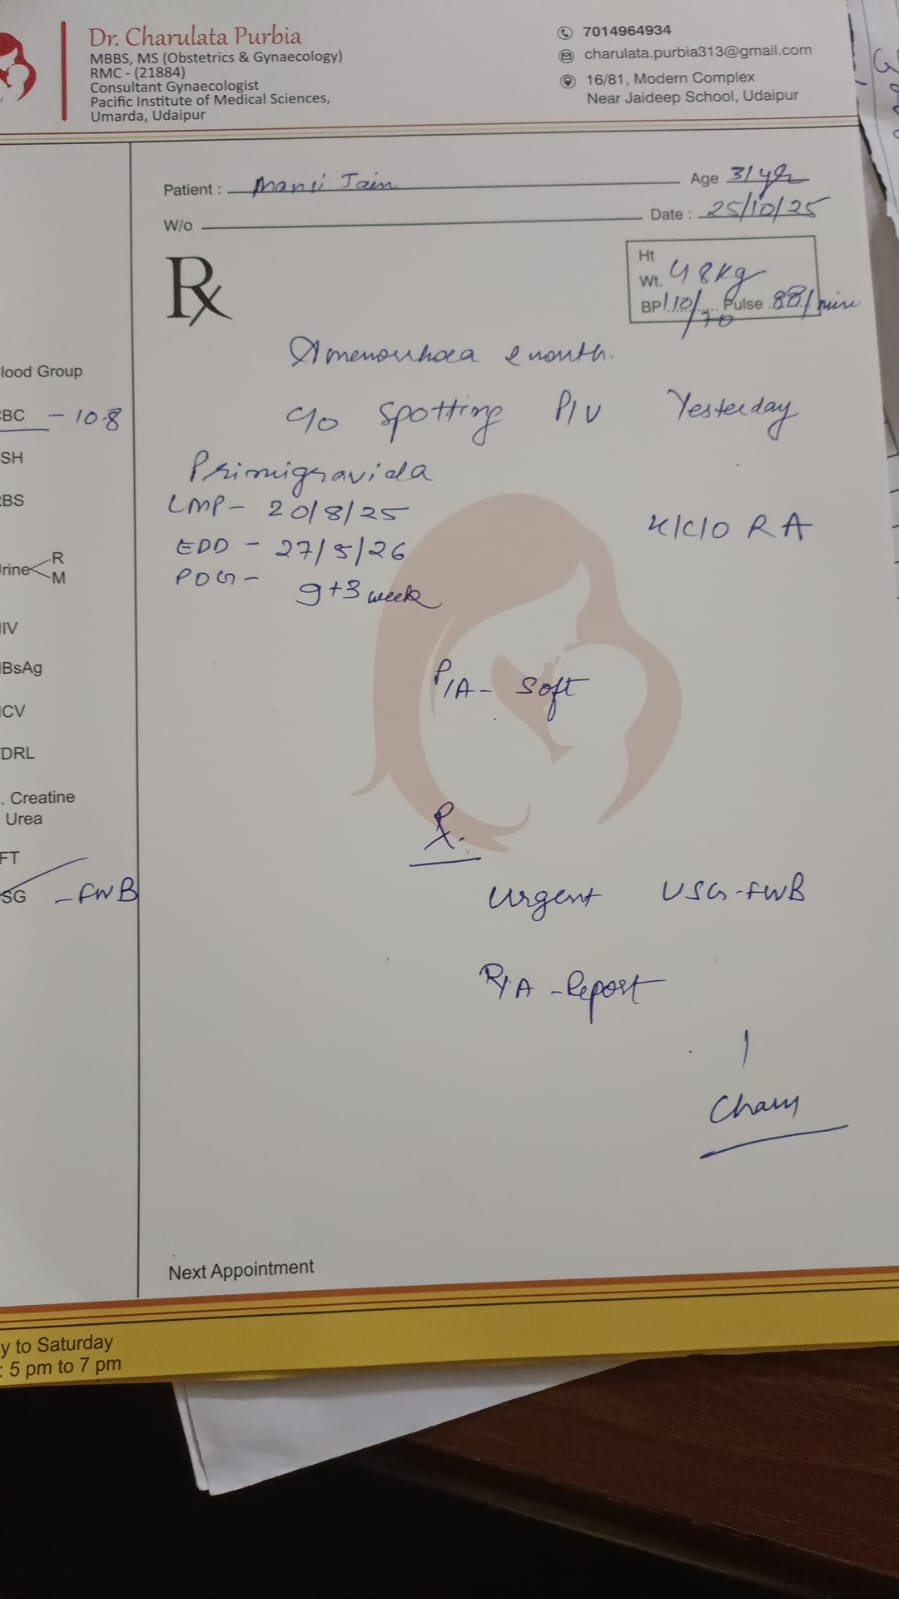 Dr. Charulata Purbia
MBBS, MS (Obstetrics & Gynaecology)
RMC - (21884)
Consultant Gynaecologist
Pacific Institute of Medical Sciences,
Umarda, Udaipur
7014964934
charulata.purbia313@gmail.com
16/81, Modern Complex
Near Jaideep School, Udaipur
Patient : Mansi Jain Age 31 yr
W/o Date : 25/10/25
Rx
Ht
Wt. 48kg
BP 110/70 Pulse 88/min
Amenorrhoea 2 month.
c/o spotting P/V Yesterday
Primigravida
LMP - 20/8/25
K/C/O RA
EDD - 27/5/26
POG - 9+3 week
P/A - Soft
Rx.
Urgent USG-FWB
R/A - Report
Charu
lood Group
BC - 10.8
SH
BS
rine R
M
IV
BsAg
CV
DRL
. Creatine
Urea
FT
SG - FWB
Next Appointment
y to Saturday
: 5 pm to 7 pm